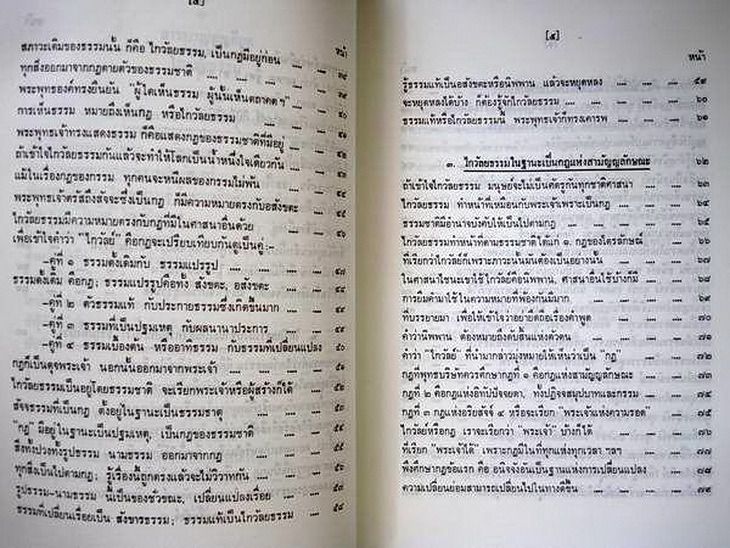 หน้า
สภาวะเดิมของธรรมนั้น ก็คือ ไกวัลยธรรม, เป็นกฎมีอยู่ก่อน
ทุกสิ่งออกมาจากกฎตายตัวของธรรมชาติ
พระพุทธองค์ทรงยืนยัน "ผู้ใดเห็นธรรม ผู้นั้นเห็นตถาคตฯ"
การเห็นธรรม หมายถึงเห็นกฎ หรือไกวัลยธรรม
พระพุทธเจ้าทรงแสดงธรรม ก็คือแสดงกฎของธรรมชาติที่มีอยู่
ถ้าเข้าใจไกวัลยธรรมกันแล้วจะทำให้โลกเป็นน้ำหนึ่งใจเดียวกัน
แม้ในเรื่องกฎของกรรม ทุกคนจะหนีผลของกรรมไม่พ้น
พระพุทธเจ้าตรัสถึงสัจจะซึ่งเป็นกฎ ก็มีความหมายตรงกับอสังขตะ
ไกวัลยธรรมมีความหมายตรงกับกฎที่มีในศาสนาอื่นด้วย
เพื่อเข้าใจคำว่า "ไกวัลย์" คือกฎจะเปรียบเทียบกันดูเป็นคู่ :-
-คู่ที่ ๑ ธรรมดั้งเดิมกับ ธรรมแปรรูป .... .... .... ๔๗
ธรรมดั้งเดิม คือกฎ; ธรรมแปรรูปคือทั้ง สังขตะ, อสังขตะ
-คู่ที่ ๒ ตัวธรรมแท้ กับประกายธรรมซึ่งเกิดขึ้นมาก
-คู่ที่ ๓ ธรรมที่เป็นปฐมเหตุ กับผลนานาประการ
-คู่ที่ ๔ ธรรมเบื้องต้น หรืออาทิธรรม กับธรรมที่เปลี่ยนแปลง ๕๐
กฎก็เป็นดุจพระเจ้า นอกนั้นออกมาจากพระเจ้า
ไกวัลยธรรมเป็นอยู่โดยธรรมชาติ จะเรียกพระเจ้าหรือผู้สร้างก็ได้
สัจจธรรมที่เป็นกฎ ตั้งอยู่ในฐานะเป็นธรรมธาตุ
"กฎ" มีอยู่ในฐานะเป็นปฐมเหตุ, เป็นกฎของธรรมชาติ
สิ่งทั้งปวงทั้งรูปธรรม นามธรรม ออกมาจากกฎ
ทุกสิ่งเป็นไปตามกฎ; รู้เรื่องนี้ถูกตรงแล้วจะไม่วิวาทกัน
รูปธรรม-นามธรรม นี้เป็นของชั่วขณะ, เปลี่ยนแปลงเรื่อย
ธรรมที่เปลี่ยนเรื่อยเป็น สังขารธรรม; ธรรมแท้เป็นไกวัลยธรรม
[๕]
หน้า
รู้ธรรมแท้เป็นอสังขตะหรือนิพพาน แล้วจะหยุดหลง .... .... ๕๙
จะหยุดหลงได้บ้าง ก็ต้องรู้จักไกวัลยธรรม .... .... .... ๖๐
ธรรมแท้หรือไกวัลยธรรมนี้ พระพุทธเจ้าก็ทรงเคารพ .... .... ๖๑
๓. ไกวัลยธรรมในฐานะเป็นกฎแห่งสามัญญลักษณะ ๖๒
ถ้าเข้าใจไกวัลยธรรม มนุษย์จะไม่เป็นศัตรูกันทุกชาติศาสนา .... ๖๓
ไกวัลยธรรม ทำหน้าที่เหมือนกับพระเจ้าเพราะเป็นกฎ .... .... ๖๔
ธรรมชาติมีอำนาจบังคับให้เป็นไปตามกฎ .... .... .... ๖๕
ไกวัลยธรรมทำหน้าที่ตามธรรมชาติได้แก่ ๑. กฎของไตรลักษณ์ .... ๖๖
ที่เรียกว่าไกวัลย์ก็เพราะภาวะนั้นมันต้องเป็นอย่างนั้น .... .... ๖๗
ในศาสนาไชนะเขาใช้ไกวัลย์คือนิพพาน, ศาสนาอื่นใช้บ้างก็มี .... ๖๘
การยืมคำมาใช้ ในความหมายที่พ้องกันมีมาก .... .... .... ๖๙
ที่บรรยายมา เพื่อให้เข้าใจว่าอย่ายึดถือเรื่องคำพูด .... .... ๗๐
คำว่านิพพาน ต้องหมายถึงดับสิ้นแห่งตัวตน .... .... .... ๗๑
คำว่า "ไกวัลย์" ที่นำมากล่าวมุ่งหมายให้เห็นว่าเป็น "กฎ" .... ๗๒
กฎที่พุทธบริษัทควรศึกษากฎที่ ๑ คือกฎแห่งสามัญญลักษณะ .... ๗๓
กฎที่ ๒ คือกฎแห่งอิทัปปัจจยตา, ทั้งปฏิจจสมุปบาทและกรรม .... ๗๔
กฎที่ ๓ กฎแห่งอริยสัจจ์ ๔ หรือจะเรียก "พระเจ้าแห่งความรอด" .... ๗๕
ไกวัลย์หรือกฎ เราจะเรียกว่า "พระเจ้า" บ้างก็ได้ .... .... ๗๖
ที่เรียก "พระเจ้าได้" เพราะกฎมีในที่ทุกแห่งทุกเวลา ฯลฯ .... ๗๗
พึงศึกษากฎข้อแรก คือ อนิจจังอันเป็นฐานแห่งการเปลี่ยนแปลง .... ๗๘
ความเปลี่ยนย่อมสามารถเปลี่ยนไปในทางดีขึ้น .... .... .... ๗๙